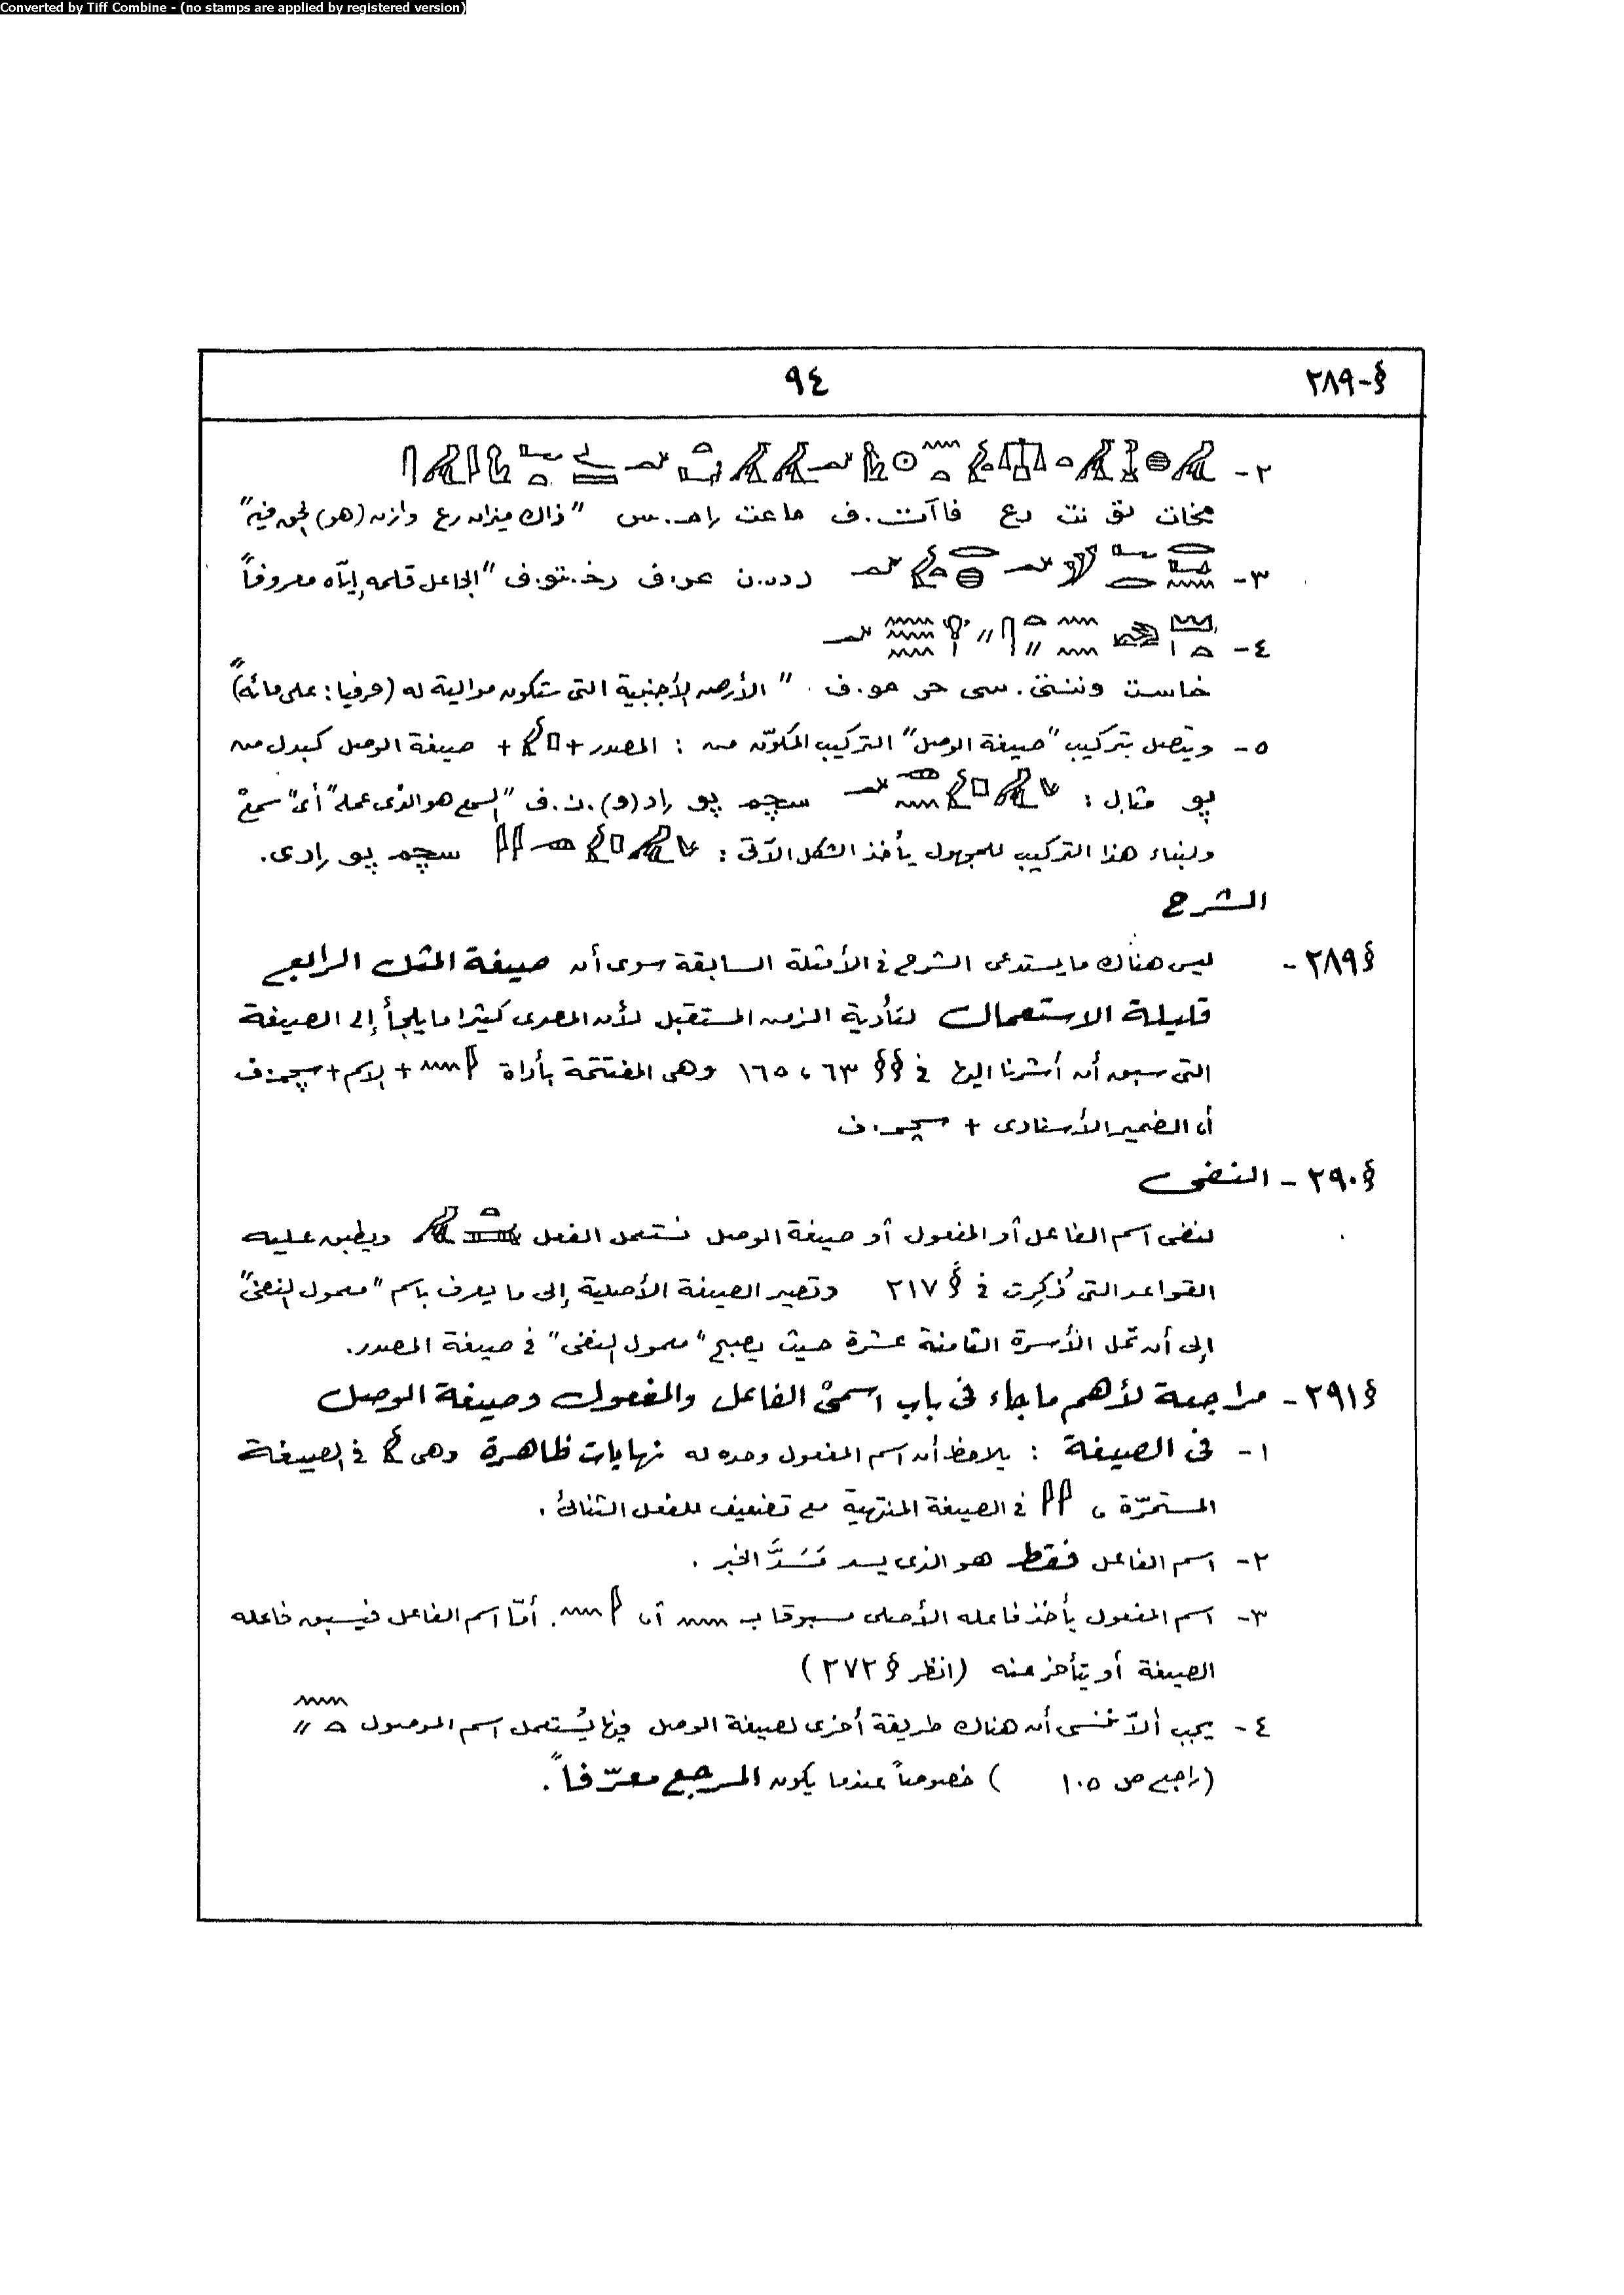 Converted by Tiff Combine - (no stamps are applied by registered version)
§-٢٨٩
٩٤
٢-
مخات نق نت رع فاآت.ف ماعت راـم.س "ذاك ميزان رع وازن (هو) الحق فيه"
٣- رد.ن عر.ف رخ.تو.ف "الجاعل قلمه إيّاه معروفاً"
٤-
خاست وننتى.سى حر مو.ف. "الأرض الأجنبية التى ستكون موالية له (حرفيا: على مائه)"
٥- ويتصل بتركيب "صيغة الوصل" التركيب المكوّن من: المصدر + + صيغة الوصل كبدل من
پو مثال: سچم پو راد(و).ن.ف "السمع هو الذى عمله" أى "سمع"
ولبناء هذا التركيب للمجهول يأخذ الشكل الآتى: سچم پو رادى.
الشرح
§٢٨٩- ليس هناك ما يستدعى الشرح فى الأمثلة السابقة سوى أن صيغة المثل الرابع
قليلة الاستعمال لتأدية الزمن المستقبل لأن المصرى كثيرا ما يلجأ إلى الصيغة
التى سبق أن أشرنا اليها فى §§ ٦٣، ١٦٥ وهى المفتتحة بأداة + الاسم + سچم.ف
أو الضمير الأسنادى + سچم.ف
§٢٩٠- النفى
لنفى اسم الفاعل أو المفعول أو صيغة الوصل نستعمل الفعل ويطبق عليه
القواعد التى ذُكِرت فى § ٢١٧ وتصير الصيغة الأصلية إلى ما يعرف باسم "معمول النفى"
إلى أن تحل الأسرة الثامنة عشرة حيث يصبح "معمول النفى" فى صيغة المصدر.
§٢٩١- مراجعة لأهم ما جاء فى باب اسمىْ الفاعل والمفعول وصيغة الوصل
١- فى الصيغة: يلاحظ أن اسم المفعول وحده له نهايات ظاهرة وهى فى الصيغة
المستمرّة، فى الصيغة المنتهية مع تضعيف للفعل الثنائى.
٢- اسم الفاعل فقط هو الذى يسد مَسَدَّ الخبر.
٣- اسم المفعول يأخذ فاعله الأصلى مسبوقا بـ أو . أمّا اسم الفاعل فيسبق فاعله
الصيغة أو يتأخر عنه (انظر § ٢٧٢)
٤- يجب ألاّ ننسى أن هناك طريقة أخرى لصيغة الوصل فيها يُستعمل اسم الموصول
(راجع ص ١٠٥ ) خصوصاً عندما يكون المرجع معرّفاً.